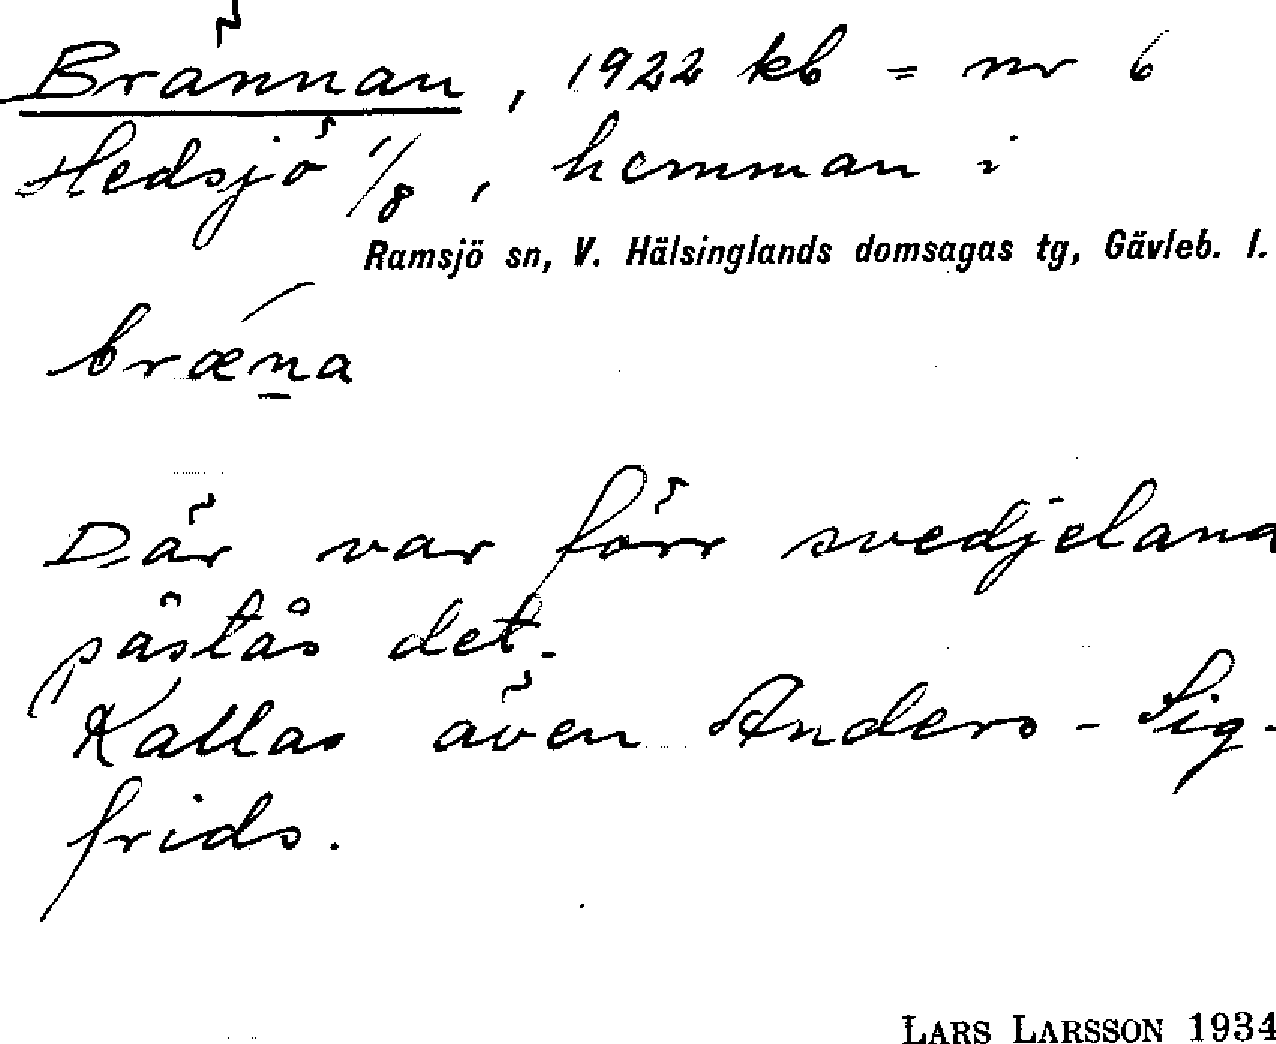 Brännan, 1922 kb = nr 6
Hedsjö 1/8, hemman i
Ramsjö sn, V. Hälsinglands domsagas tg, Gävleb. l.
bræ´n̲a
Där var förr svedjeland
påstås det.
Kallas även Anders-Sig-
frids.
LARS LARSSON 1934